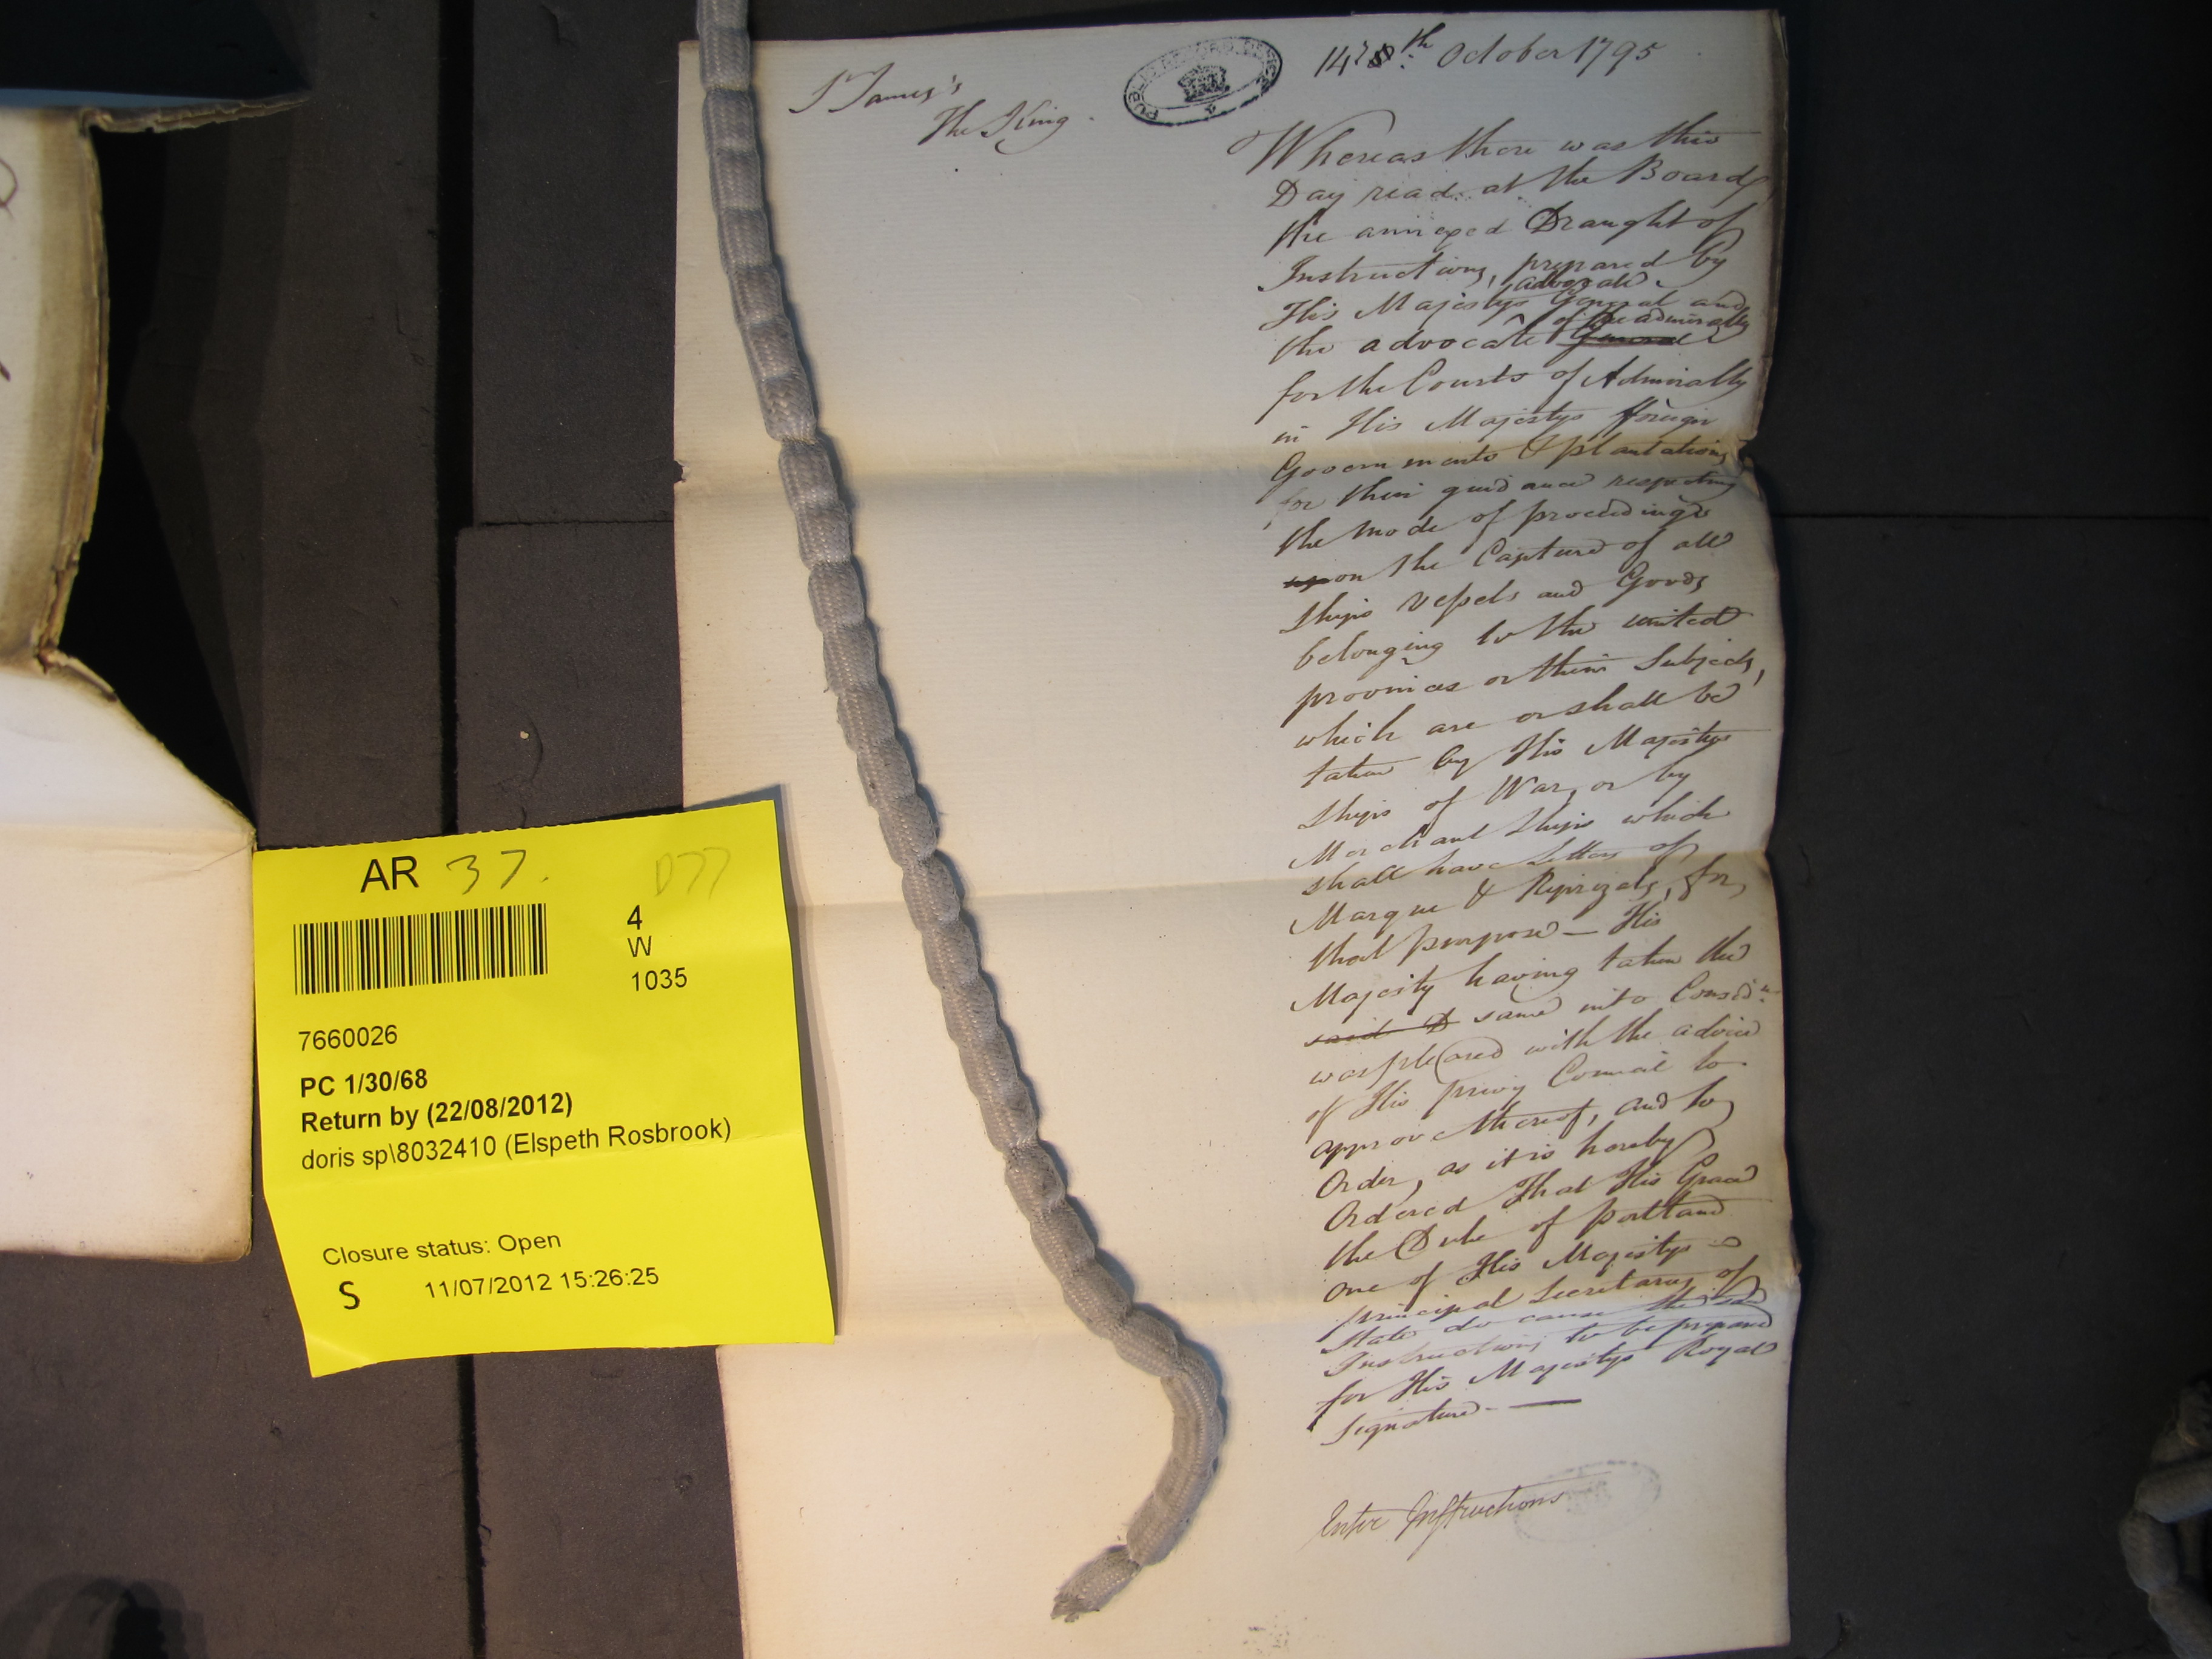 St James's
The King.
PUBLIC RECORD OFFICE
14th October 1795
Whereas there was this
Day read at the Board
the annexed Draught of
Instructions, prepared by
advocate
His Majestys General and
of the admiralty
the advocate General
for the Courts of Admiralty
in His Majestys fforeign
Governments & plantations
for their guidance respecting
the mode of proceedings
upon the Capture of all
Ships Vessels and Goods
belonging to the united
provinces or their Subjects,
which are or shall be
taken by His Majestys
Ships of War, or by
Merchant Ships which
shall have Letters of
Marque & Reprizals, for
that purpose — His
Majesty having taken the
said D same into Considn
was pleased with the advice
of His privy Council to
approve thereof, and to
Order, as it is hereby
Ordered That His Grace
the Duke of portland
one of His Majestys
principal Secretarys of
State do cause the sd
Instructions to be prepared
for His Majestys Royal
Signature. —
Enter Instructions
AR 37.
D77
4
W
1035
7660026
PC 1/30/68
Return by (22/08/2012)
doris sp\8032410 (Elspeth Rosbrook)
Closure status: Open
S 11/07/2012 15:26:25